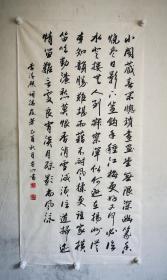 小閣藏春閒窗鎖晝畫堂無限深幽篆香
燒盡日影下簾鈎手種江梅更好又何必臨
水登樓無人到寂寥渾似何遜在揚州從
來知韻勝難堪雨藉不耐風揉更誰家橫
笛吹動濃愁莫恨香消雪減須信道掃跡
情留難言處良宵淡月疏影尚風流
李清照詞滿庭芳 乙酉秋月 書